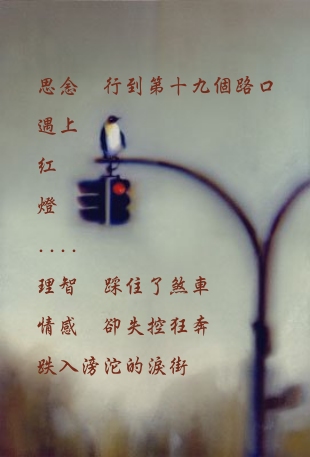 思念　行到第十九個路口
遇上
紅
燈
....
理智　踩住了煞車
情感　卻失控狂奔
跌入滂沱的淚街